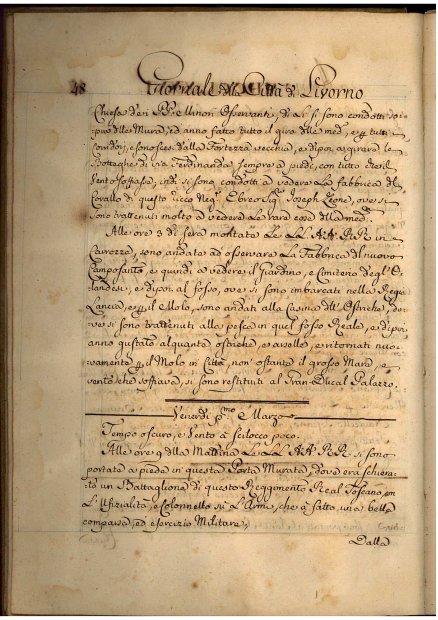 48 Giornale della Città di Livorno
Chiesa dei PP. Minori Osservanti, di Lì si sono condotti so=
pra della Mura, ed anno fatto tutto il giro delle med.e, e per tutti i
Corridoj, e sono scesi dalla Fortezza vecchia, e di poi a girare le
Botteghe di via Ferdinanda sempre a piedi, con tutto che il
Vento soffiasse; indi si sono condotti a vedere La fabbrica del
Corallo di questo ricco Neg.te Ebreo Sig.r Joseph Leone, ove si
sono trattenuti molto a vedere Le rare cose della med.a
Alle ore 3 di sera montate Le LL. AA. RR. in
Carrozza, sono andate ad osservare La Fabbrica del nuovo
Camposanto, e quindi a vedere il Giardino, e Cimiterio degl'O=
landesi, e di poi al fosso, ove si sono imbarcati nella Regia
Lancia, e per il Molo, sono andati alla Casina dell'Ostriche, do=
ve si sono trattenuti alla pesca in quel fosso Reale, e di poi
anno gustato alquante ostriche, e ritornati nuo=
vamente per il Molo in Città, non'ostante il grosso Mare, e
vento che soffiava, si sono restituti al Gran-Ducal Palazzo.
Venerdì p.mo Marzo
Tempo oscuro, e Vento a Scilocco poco.
Alle ore 9 della Mattina Le LL. AA. RR. si sono
portate a piedi in questa Porta Murata, dove era schiera=
to un Battaglione di questo Reggimento Real Toscano, con
L'Ufizialità, e Colonnello su L'Armi, che à fatto una bella
comparsa, ed esercizio Militare,
Dalla